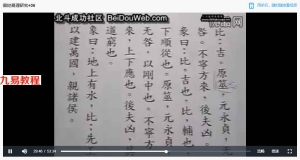 北斗成功社区 BeiDouWeb.com
比:吉。原筮,元永貞,无
咎。不寧方來,後夫凶。
彖曰:比,吉也。比,輔也,
下順從也。原筮,元永貞,
无咎,以剛中也。不寧方
來,上下應也。後夫凶,其
道窮也。
象曰:地上有水,比;先王
以建萬國,親諸侯。
九易教程
29:46 / 53:34